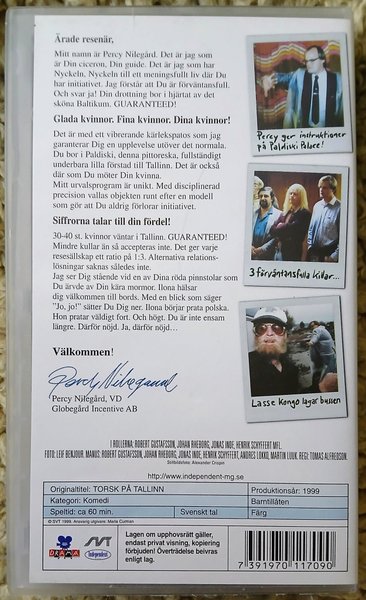 Ärade resenär,
Mitt namn är Percy Nilegård. Det är jag som
är Din ciceron, Din guide. Det är jag som har
Nyckeln. Nyckeln till ett meningsfullt liv där Du
har Initiativet. Jag förstår att Du är förväntansfull.
Och svar ja! Din drottning bor i hjärtat av det
sköna Baltikum. GUARANTEED!
Glada kvinnor. Fina kvinnor. Dina kvinnor!
Det är med ett vibrerande kärlekspatos som jag
garanterar Dig en upplevelse utöver det normala.
Du bor i Paldiski, denna pittoreska, fullständigt
underbara lilla förstad till Tallinn. Det är också
där som Du möter Din kvinna.
Mitt urvalsprogram är unikt. Med disciplinerad
precision vallas objekten runt efter en modell
som gör att Du aldrig förlorar initiativet.
Siffrorna talar till din fördel!
30-40 st. kvinnor väntar i Tallinn. GUARANTEED!
Mindre kullar än så accepteras inte. Det ger varje
resesällskap ett ratio på 1:3. Alternativa relations-
lösningar saknas således inte.
Jag ser Dig stående vid en av Dina röda pinnstolar som
Du ärvde av Din kära mormor. Ilona hälsar
dig välkommen till bords. Med en blick som säger
"Jo, jo!" sätter Du Dig ner. Ilona börjar prata polska.
Hon pratar väldigt fort. Och högt. Du är inte ensam
längre. Därför nöjd. Ja, därför nöjd…
Välkommen!
Percy Nilegaard
Percy Nilegård, VD
Globegård Incentive AB
Percy ger instruktioner
på Paldiski Palace!
3 förväntansfulla killar...
Lasse Kongo lagar bussen
I ROLLERNA: ROBERT GUSTAFSSON, JOHAN RHEBORG, JONAS INDE, HENRIK SCHYFFERT MFL.
FOTO: LEIF BENJOUR. MANUS: ROBERT GUSTAFSSON, JOHAN RHEBORG, JONAS INDE, HENRIK SCHYFFERT, ANDRES LOKKO, MARTIN LUUK. REGI: TOMAS ALFREDSON.
Stillbildsfoto: Alexander Crispin
http://www.independent-mg.se
Originaltitel: TORSK PÅ TALLINN
Produktionsår: 1999
Kategori: Komedi
Barntillåten
Speltid: ca 60 min.
Svenskt tal
Färg
© SVT 1999. Ansvarig utgivare: Maria Curman
DRAMA
SVT
Independent
Lagen om upphovsrätt gäller,
endast privat visning, kopiering
förbjuden! Överträdelse beivras
enligt lag.
7 391970 117090